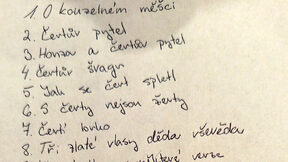 1. O kouzelném měšci
2. Čertův pytel
3. Honza a čertův pytel
4. Čertův švagr
5. Jak se čert spletl
6. S čerty nejsou žerty
7. Čertí brko
8. Tři zlaté vlasy děda vševěda
verze